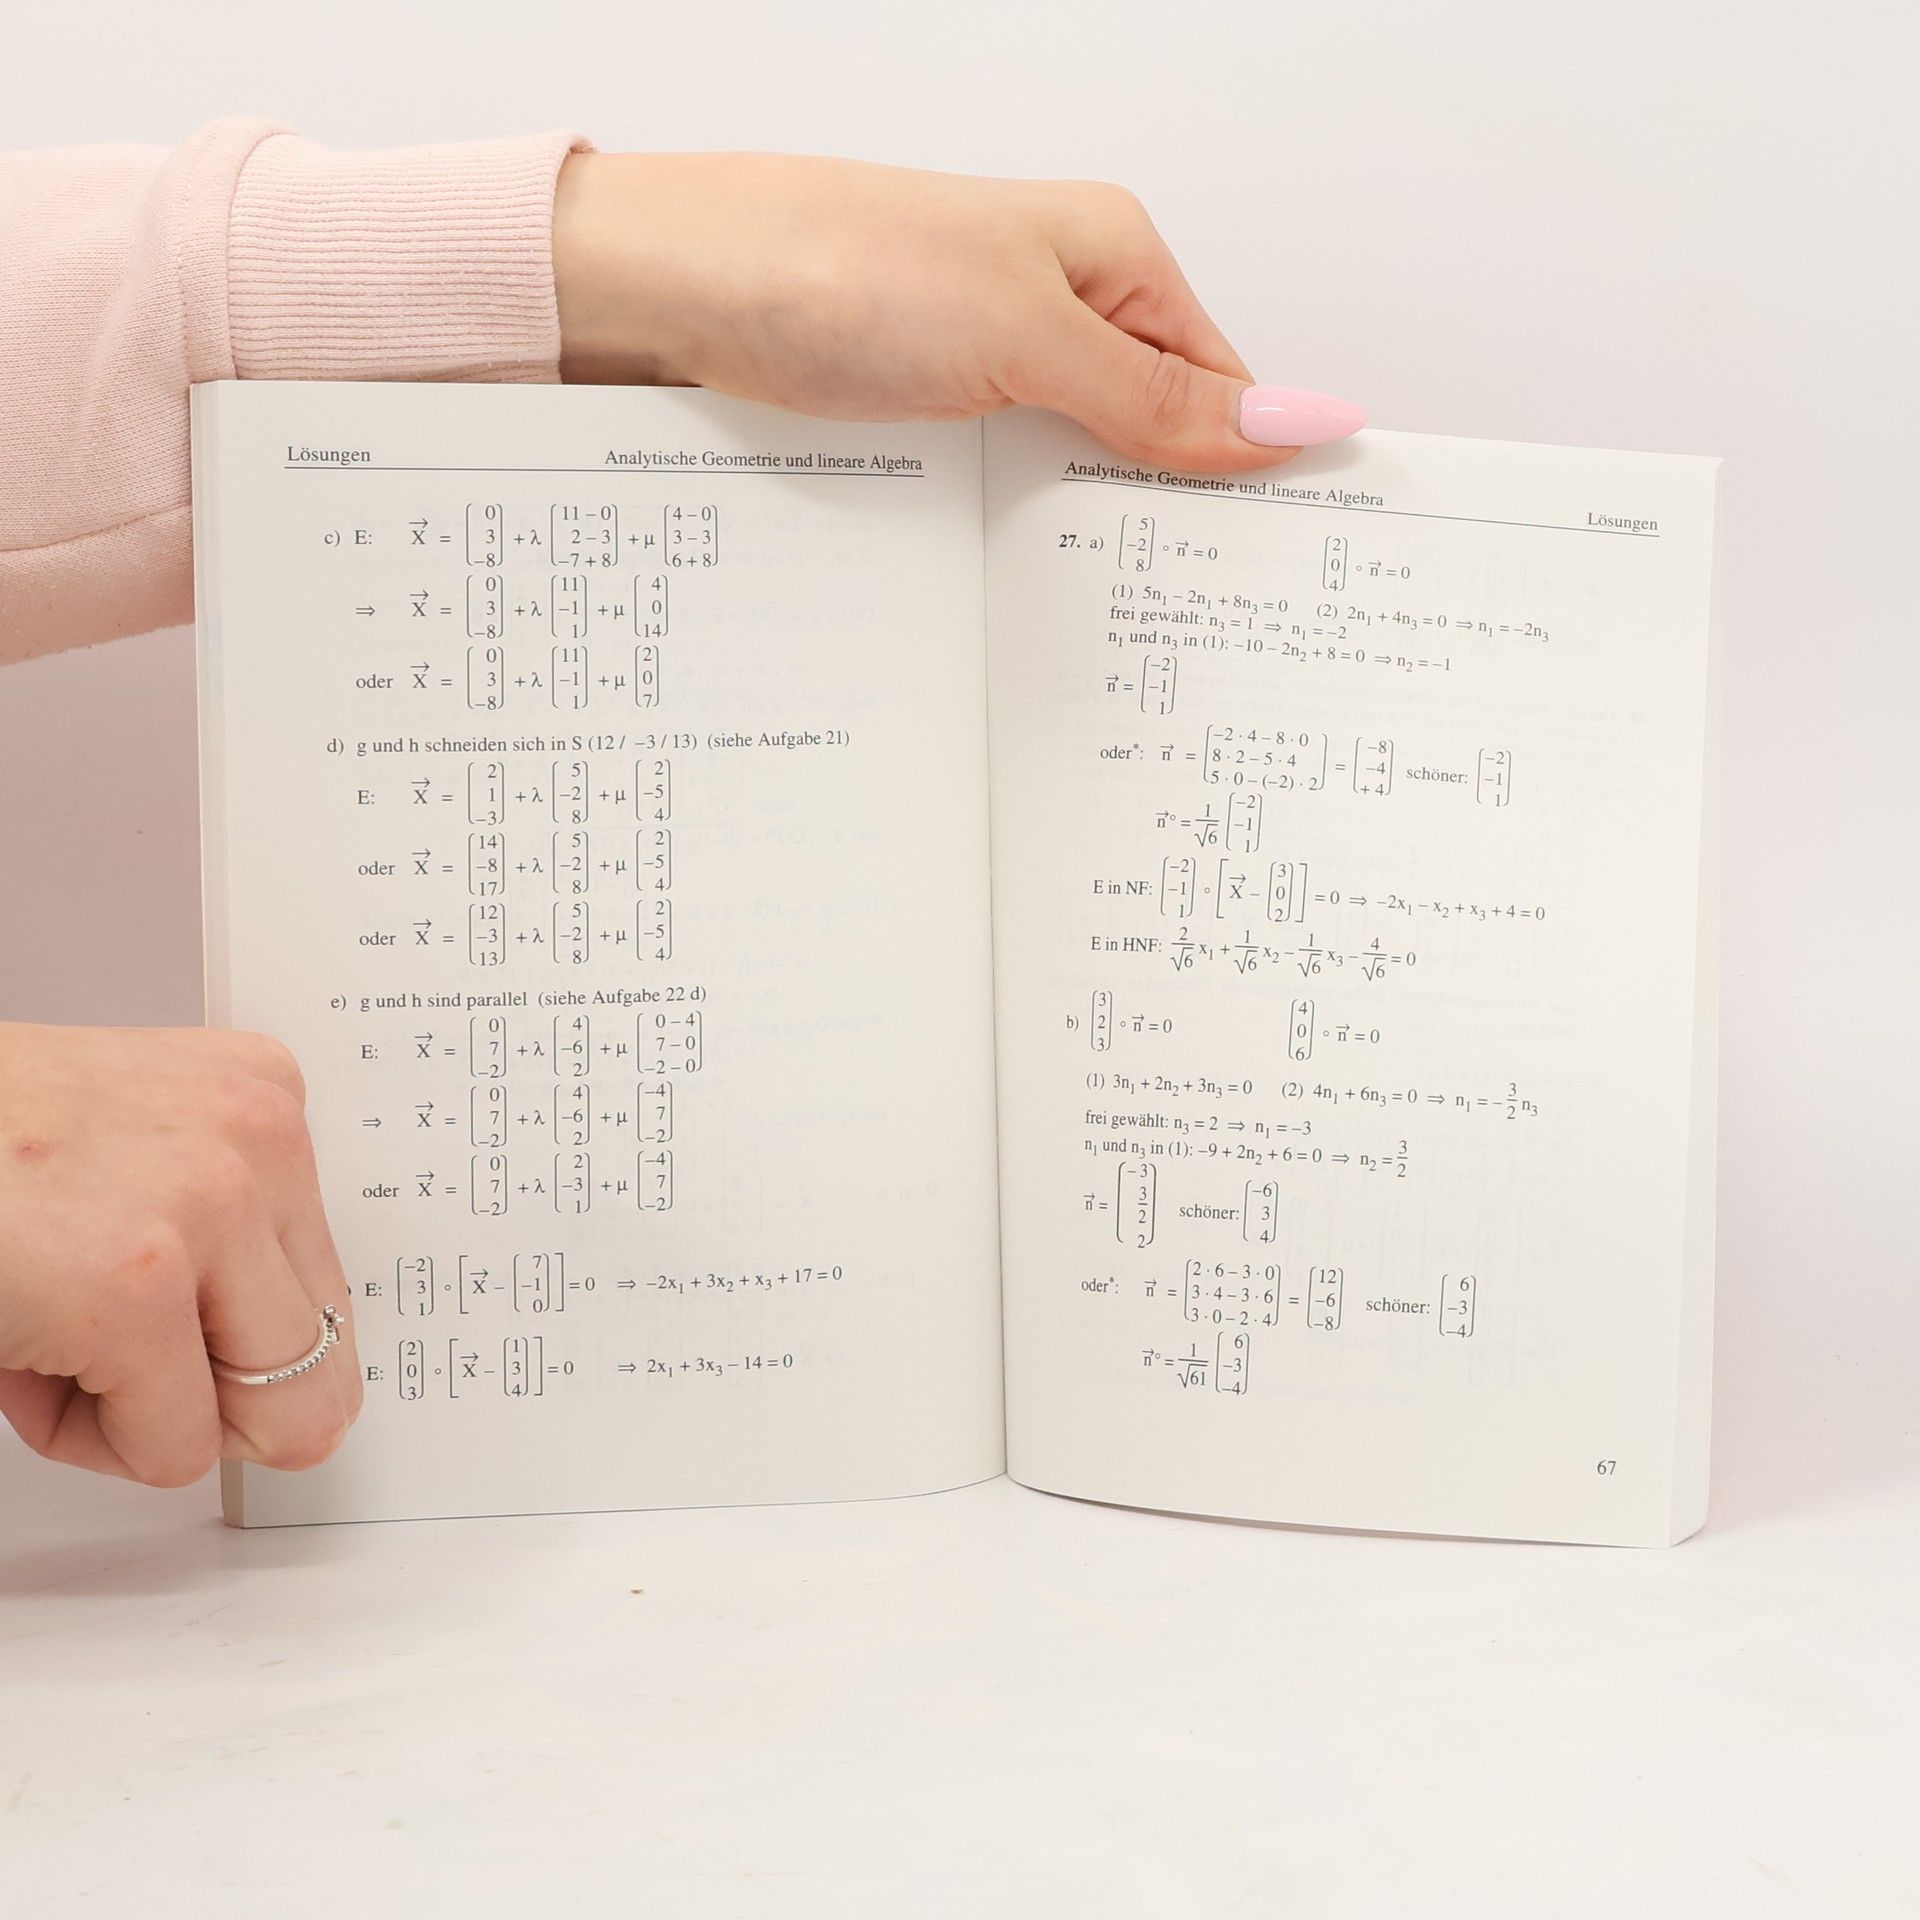 Lösungen Analytische Geometrie und lineare Algebra
c) E: X⃗ = (0 3 −8) + λ (11 − 0 2 − 3 −7 + 8) + μ (4 − 0 3 − 3 6 + 8)
⇒ X⃗ = (0 3 −8) + λ (11 −1 1) + μ (4 0 14)
oder X⃗ = (0 3 −8) + λ (11 −1 1) + μ (2 0 7)
d) g und h schneiden sich in S (12 / −3 / 13) (siehe Aufgabe 21)
E: X⃗ = (2 1 −3) + λ (5 −2 8) + μ (2 −5 4)
oder X⃗ = (14 −8 17) + λ (5 −2 8) + μ (2 −5 4)
oder X⃗ = (12 −3 13) + λ (5 −2 8) + μ (2 −5 4)
e) g und h sind parallel (siehe Aufgabe 22 d)
E: X⃗ = (0 7 −2) + λ (4 −6 2) + μ (0 − 4 7 − 0 −2 − 0)
⇒ X⃗ = (0 7 −2) + λ (4 −6 2) + μ (−4 7 −2)
oder X⃗ = (0 7 −2) + λ (2 −3 1) + μ (−4 7 −2)
E: (−2 3 1) ∘ [X⃗ − (7 −1 0)] = 0 ⇒ −2x₁ + 3x₂ + x₃ + 17 = 0
E: (2 0 3) ∘ [X⃗ − (1 3 4)] = 0 ⇒ 2x₁ + 3x₃ − 14 = 0
Analytische Geometrie und lineare Algebra Lösungen
27. a) (5 −2 8) ∘ n⃗ = 0 (2 0 4) ∘ n⃗ = 0
(1) 5n₁ − 2n₁ + 8n₃ = 0 (2) 2n₁ + 4n₃ = 0 ⇒ n₁ = −2n₃
frei gewählt: n₃ = 1 ⇒ n₁ = −2
n₁ und n₃ in (1): −10 − 2n₂ + 8 = 0 ⇒ n₂ = −1
n⃗ = (−2 −1 1)
oder*: n⃗ = (−2 · 4 − 8 · 0 8 · 2 − 5 · 4 5 · 0 − (−2) · 2) = (−8 −4 +4) schöner: (−2 −1 1)
n⃗° = 1/√6 (−2 −1 1)
E in NF: (−2 −1 1) ∘ [X⃗ − (3 0 2)] = 0 ⇒ −2x₁ − x₂ + x₃ + 4 = 0
E in HNF: 2/√6 x₁ + 1/√6 x₂ − 1/√6 x₃ − 4/√6 = 0
b) (3 2 3) ∘ n⃗ = 0 (4 0 6) ∘ n⃗ = 0
(1) 3n₁ + 2n₂ + 3n₃ = 0 (2) 4n₁ + 6n₃ = 0 ⇒ n₁ = −3/2 n₃
frei gewählt: n₃ = 2 ⇒ n₁ = −3
n₁ und n₃ in (1): −9 + 2n₂ + 6 = 0 ⇒ n₂ = 3/2
n⃗ = (−3 3/2 2) schöner: (−6 3 4)
oder*: n⃗ = (2 · 6 − 3 · 0 3 · 4 − 3 · 6 3 · 0 − 2 · 4) = (12 −6 −8) schöner: (6 −3 −4)
n⃗° = 1/√61 (6 −3 −4)
67